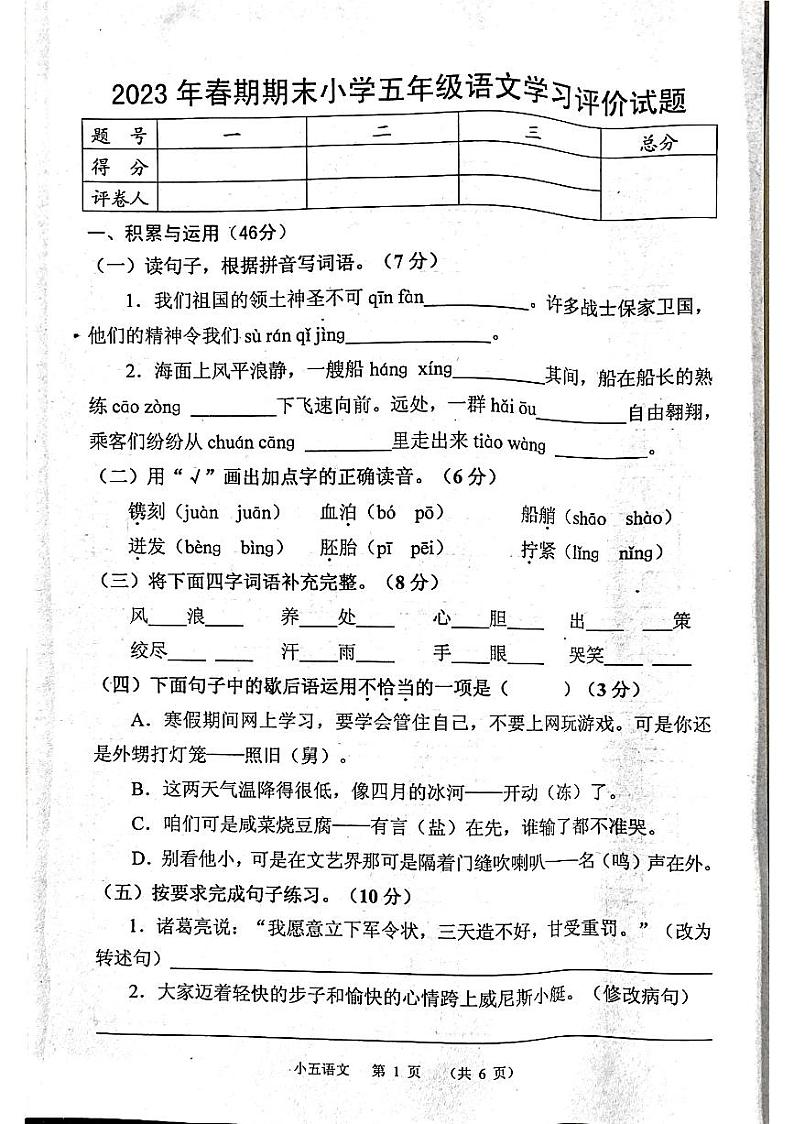 2023年春期期末小学五年级语文学习评价试题
题 号 一 二 三 总分
得 分
评卷人
一、积累与运用（46分）
（一）读句子，根据拼音写词语。（7分）
1．我们祖国的领土神圣不可 qīn fàn____________。许多战士保家卫国，
他们的精神令我们 sù rán qǐ jìng________________。
2．海面上风平浪静，一艘船 háng xíng__________其间，船在船长的熟
练 cāo zòng __________下飞速向前。远处，一群 hǎi ōu__________自由翱翔，
乘客们纷纷从 chuán cāng __________里走出来 tiào wàng __________。
（二）用“√”画出加点字的正确读音。（6分）
镌刻（juàn juān） 血泊（bó pō） 船艄（shāo shào）
迸发（bèng bìng） 胚胎（pī pēi） 拧紧（líng nǐng）
（三）将下面四字词语补充完整。（8分）
风____浪____ 养____处____ 心____胆____ 出____ ____策
绞尽____ ____ 汗____雨____ 手____眼____ 哭笑____ ____
（四）下面句子中的歇后语运用不恰当的一项是（ ）（3分）
A．寒假期间网上学习，要学会管住自己，不要上网玩游戏。可是你还
是外甥打灯笼——照旧（舅）。
B．这两天气温降得很低，像四月的冰河——开动（冻）了。
C．咱们可是咸菜烧豆腐——有言（盐）在先，谁输了都不准哭。
D．别看他小，可是在文艺界那可是隔着门缝吹喇叭——名（鸣）声在外。
（五）按要求完成句子练习。（10分）
1．诸葛亮说：“我愿意立下军令状，三天造不好，甘受重罚。”（改为
转述句）____________________
2．大家迈着轻快的步子和愉快的心情跨上威尼斯小艇。（修改病句）
小五语文 第 1 页 （共 6 页）